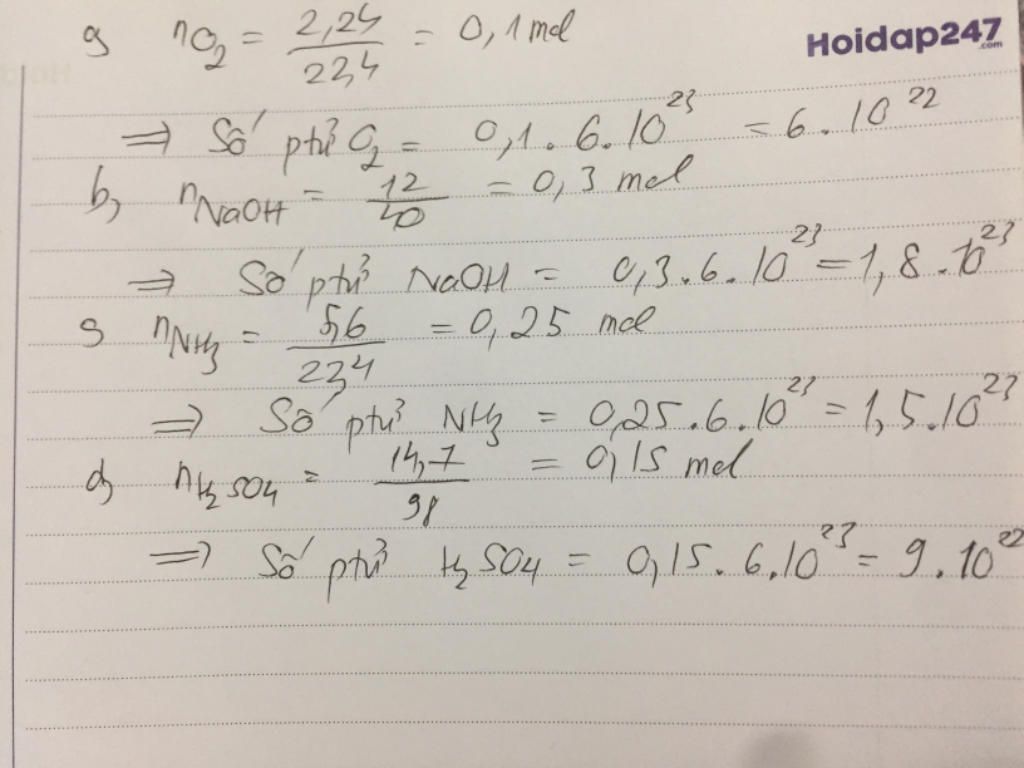 a, nO2 = 2,24/22,4 = 0,1 mol
Hoidap247.com
=> Số ptử O2 = 0,1 . 6.10^23 = 6.10^22
b, nNaOH = 12/40 = 0,3 mol
=> Số ptử NaOH = 0,3.6.10^23 = 1,8.10^23
c, nNH3 = 5,6/22,4 = 0,25 mol
=> Số ptử NH3 = 0,25.6.10^23 = 1,5.10^23
d, nH2SO4 = 14,7/98 = 0,15 mol
=> Số ptử H2SO4 = 0,15.6.10^23 = 9.10^22